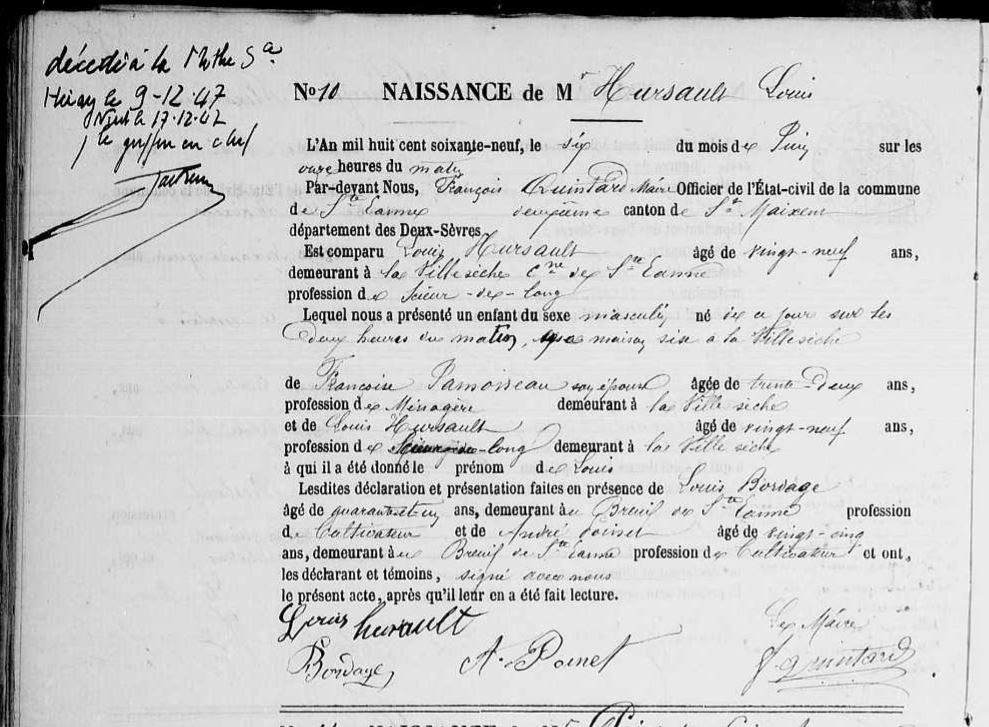 décédé à la Mothe St
Héray le 9-12-47
Niort le 17.12.47
le greffier en chef
No 10 NAISSANCE de Mr Hursault Louis
L'An mil huit cent soixante-neuf, le six du mois de Juin sur les
onze heures du matin
Par-devant Nous, François Quintard Maire Officier de l'État-civil de la commune
de Ste Eanne deuxième canton de St Maixent
département des Deux-Sèvres.
Est comparu Louis Hursault âgé de vingt-neuf ans,
demeurant à la Villesèche Cne de Ste Eanne
profession de Scieur-de-long
Lequel nous a présenté un enfant du sexe masculin né de ce jour sur les
deux heures du matin, maison sise à la Villesèche
de Françoise Pamoiseau son épouse âgée de trente-deux ans,
profession de Ménagère demeurant à la Ville sèche
et de Louis Hursault âgé de vingt-neuf ans,
profession de Scieur-de-long demeurant à la Ville sèche
à qui il a été donné le prénom de Louis
Lesdites déclaration et présentation faites en présence de Louis Bordage
âgé de quarante et un ans, demeurant au Breuil de Ste Eanne profession
de Cultivateur et de André Poinet âgé de vingt-cinq
ans, demeurant au Breuil de Ste Eanne profession de Cultivateur et ont,
les déclarant et témoins, signé avec nous
le présent acte, après qu'il leur en a été fait lecture.
Louis hursault Le Maire
Bordage A. Poinet F. Quintard